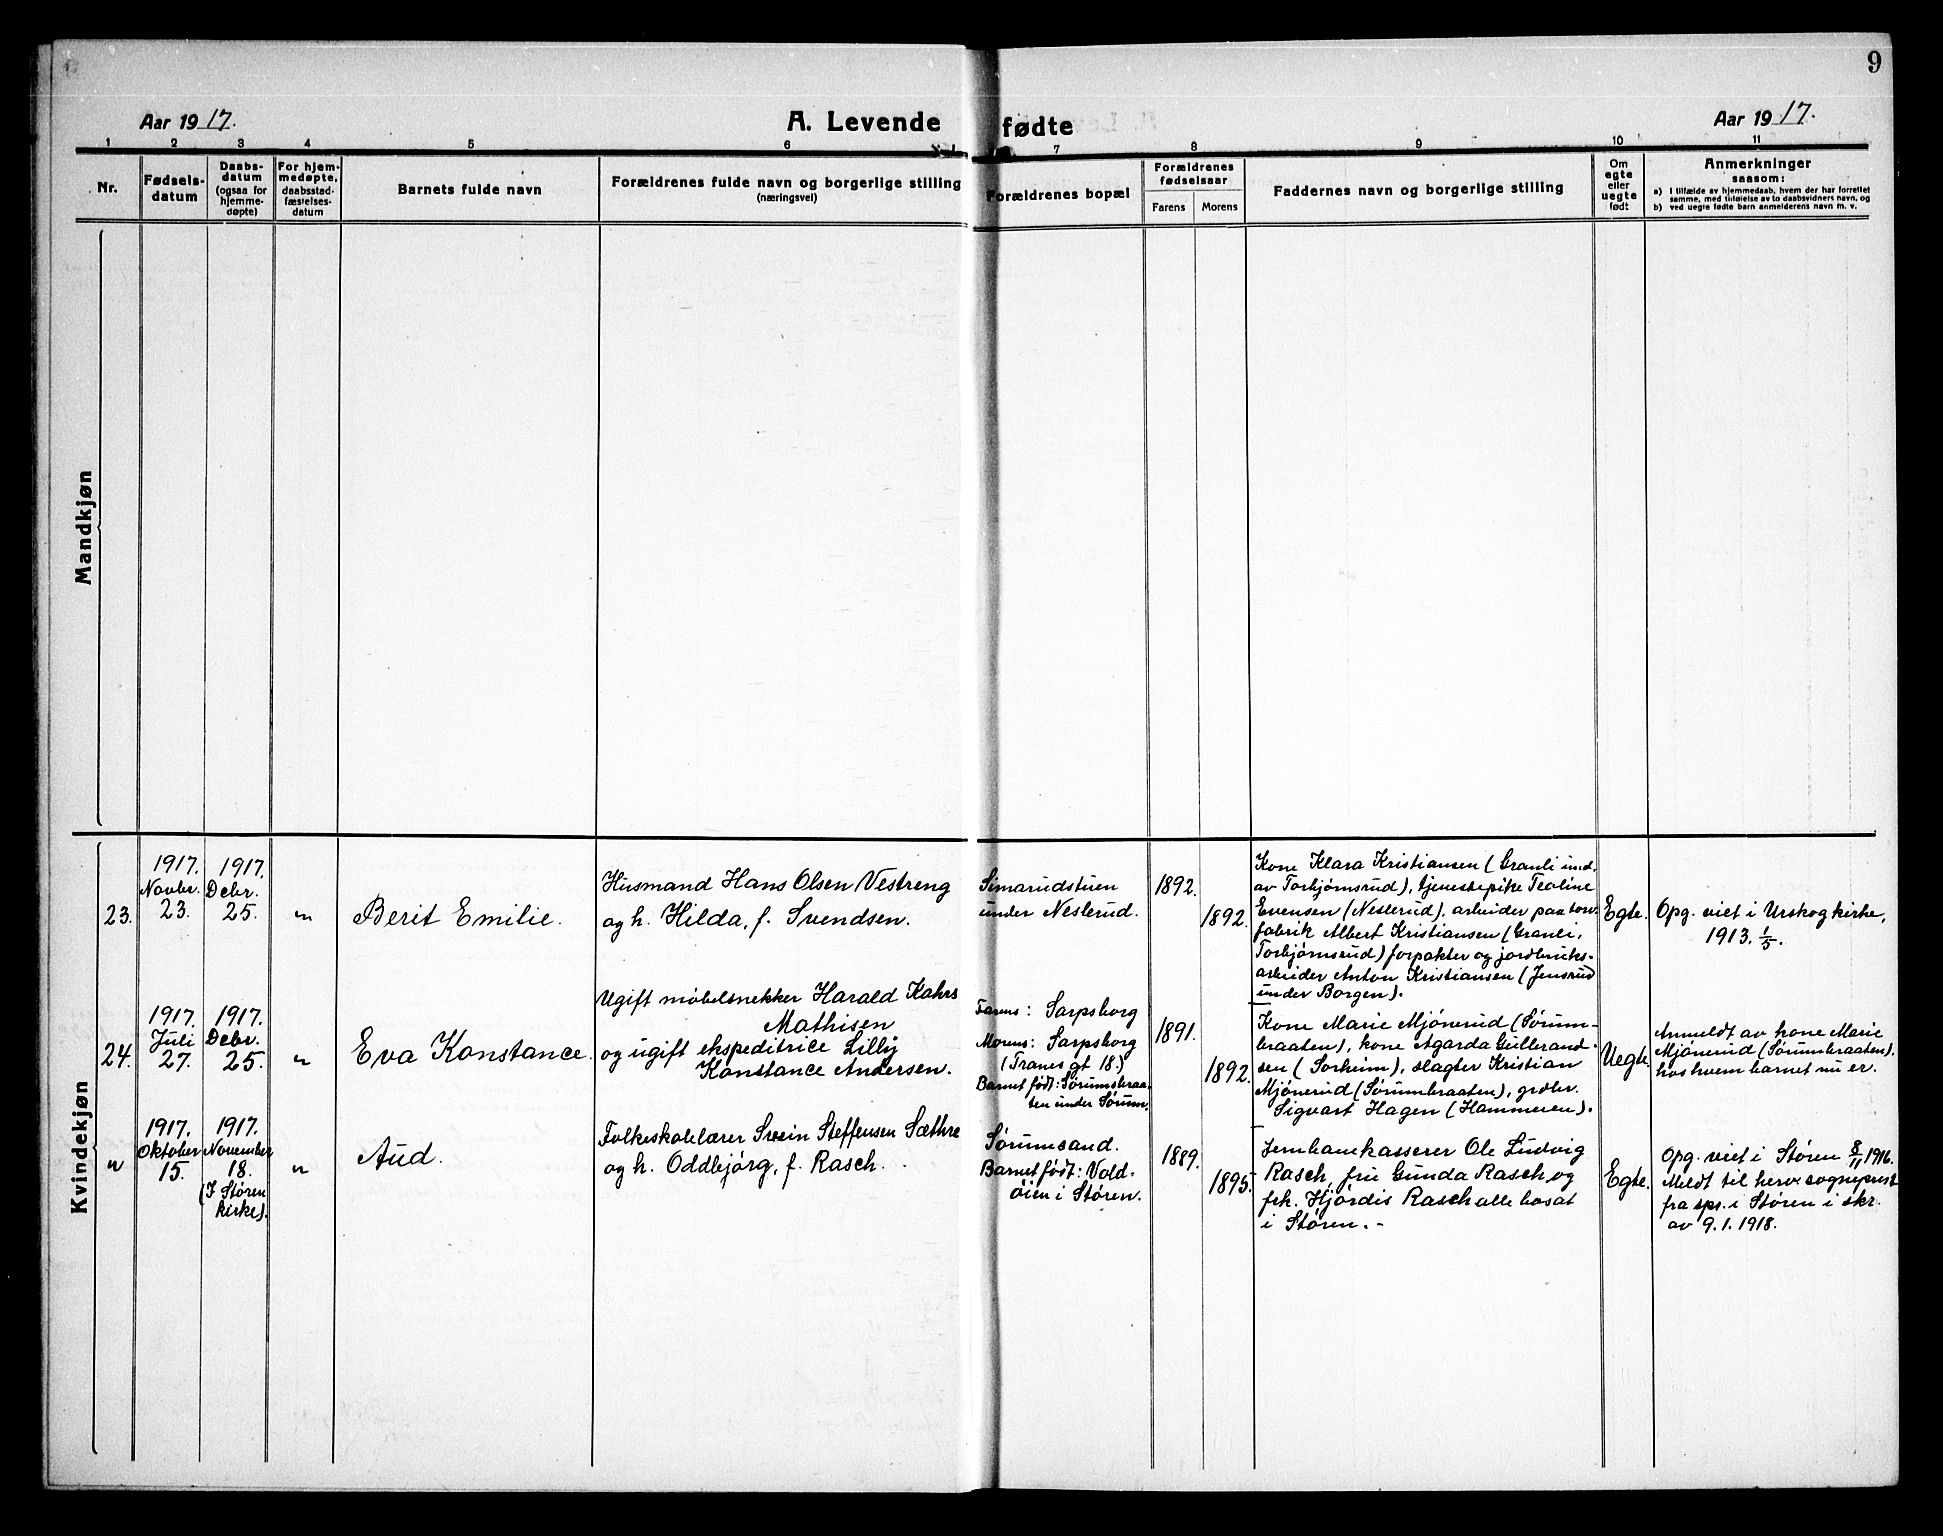 9
Aar 1917.
A. Levende fødte
Aar 1917.
1 2 3 4 5 6 7 8 9 10 11
Nr.
Fødsels-
datum
Daabs-
datum
(ogsaa for
hjemme-
døpte)
For hjem-
medøpte,
daabsstad-
fæstelses-
datum
Barnets fulde navn
Forældrenes fulde navn og borgerlige stilling
(næringsvei)
Forældrenes bopæl
Forældrenes
fødselsaar
Farens
Morens
Faddernes navn og borgerlige stilling
Om
egte
eller
uegte
født
Anmerkninger
saasom:
a) I tilfælde av hjemmedaab, hvem der har forrettet
samme, med tilføielse av to daabsvidners navn, og
b) ved uegte fødte barn anmelderens navn m. v.
Mandkjøn
Kvindekjøn
23.
1917.
Novbr.
23.
1917.
Debr.
25.
"
Berit Emilie.
Husmand Hans Olsen Vestreng
og h. Hilda, f. Svendsen.
Simarudstuen
under Neslerud.
1892.
1892.
Kone Klara Kristiansen (Granli und.
av Torbjørnsrud), tjenestepike Teoline
Evensen (Neslerud), arbeider paa torv
fabrik Albert Kristiansen (Granli,
Torbjørnsrud) forpakter og jordbruks-
arbeider Anton Kristiansen (Jensrud
under Borgen).
Egte.
Opg. viet i Urskog kirke,
1913. 1/5.
24.
1917.
Juli
27.
1917.
Debr.
25.
"
Eva Konstance.
Ugift møbelsnekker Harald Kahrs
Mathisen
og ugift ekspeditrice Lilly
Konstance Andersen.
Farens: Sarpsborg
Morens: Sarpsborg
(Tranes gt 18.)
Barnet født: Sørumsbraa-
ten under Sørum.
1891.
1892.
Kone Marie Mjønerud (Sørum-
braaten), kone Agarda Gulbrand-
sen (Sorheim), slagter Kristian
Mjønerud (Sørumbraaten), grdbr.
Sigvart Hagen (Hammeren).
Uegte
Anmeldt av kone Marie
Mjønerud (Sørumbraaten).
hos hvem barnet nu er.
"
1917.
Oktober
15.
1917.
November
18.
(I Støren
kirke).
"
Aud.
Folkeskolelærer Svein Steffensen Sæthre
og h. Oddbjørg, f. Rasch.
Sørumsand.
Barnet født: Vold-
øien i Støren.
1889.
1895.
Jernbanekasserer Ole Ludvig
Rasch, fru Gunda Rasch og
frk. Hjørdis Rasch alle bosat
i Støren. -
Egte.
Opg. viet i Støren 8/11 1916.
Meldt til herv. sogneprest
fra spr. i Støren i skr.
av 9.1.1918.